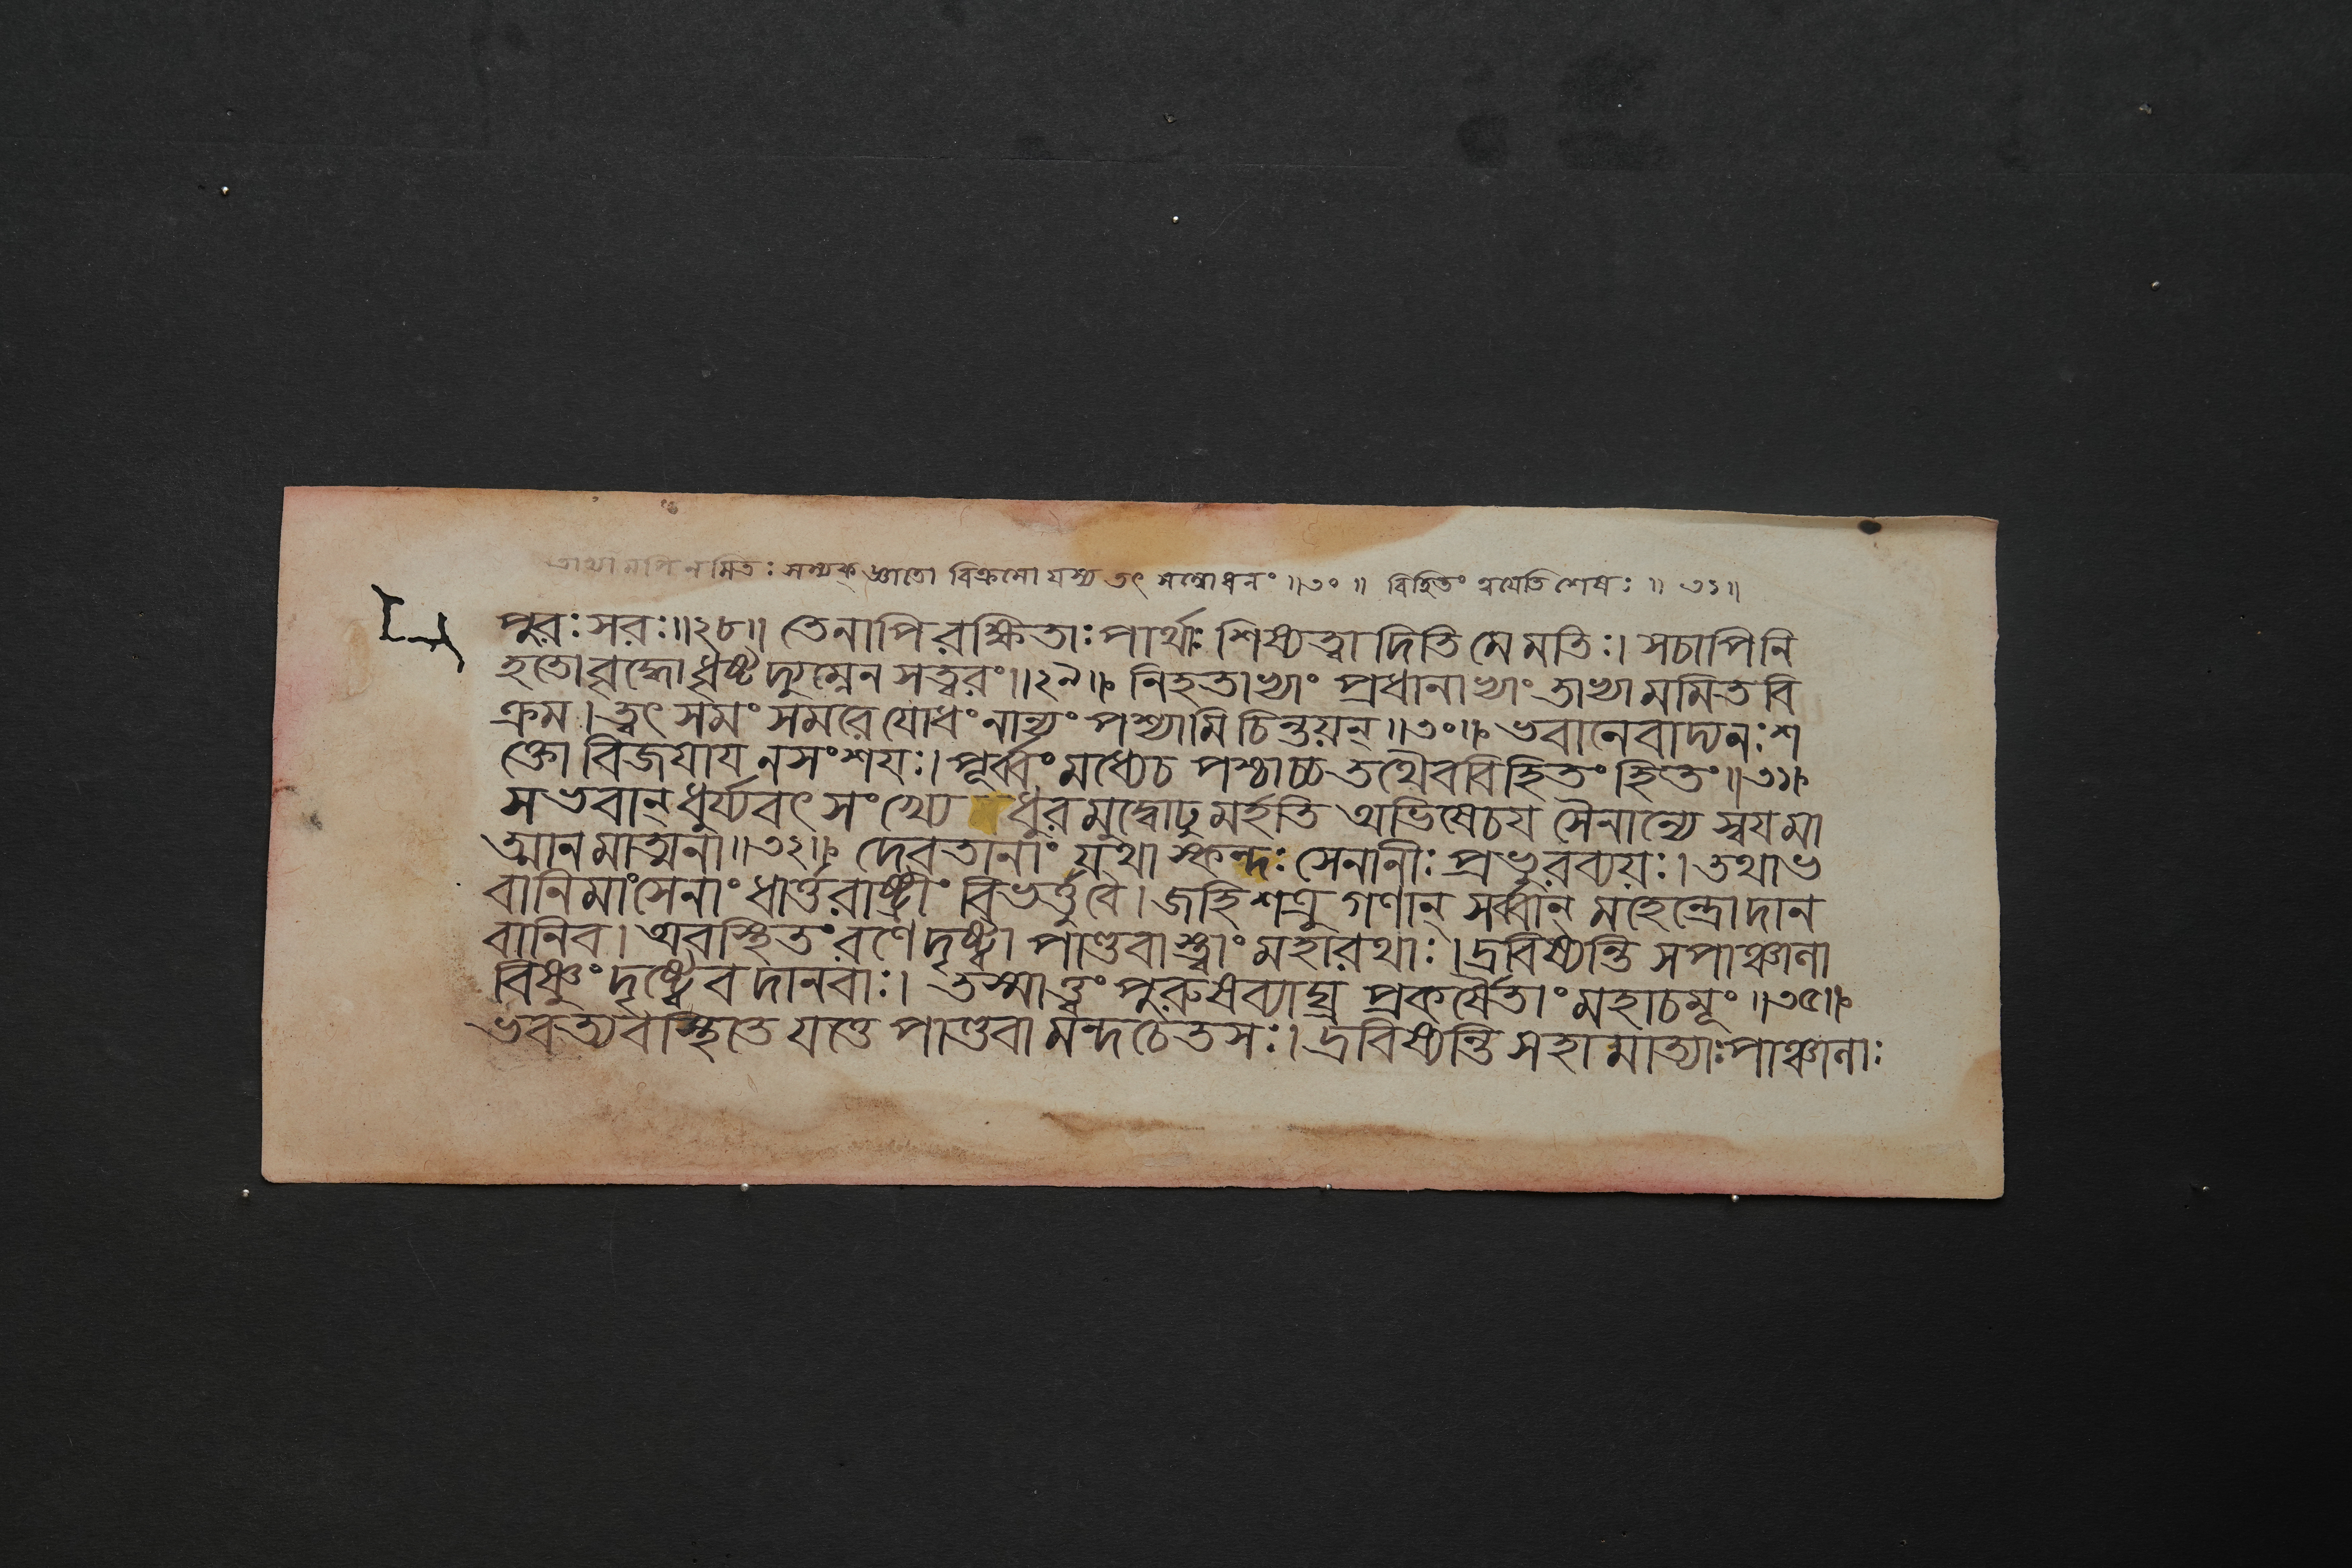 তাভ্যামপিনামিতঃ সম্যক্ জ্ঞাতো বিক্রমো যস্য তৎ সম্বোধনং ॥৩০॥ বিহিতং ত্বযেতি শেষঃ ॥ ৩১॥
পুরঃসরঃ॥২৮॥ তেনাপি রক্ষিতাঃ পার্থাঃ শিষ্যত্বাদিতি মে মতিঃ। সচাপিনি
হতোবৃদ্ধো ধৃষ্টদ্যুম্নেন সত্বরং॥২৯॥ নিহতাভ্যাং প্রধানাভ্যাং তাভ্যামমিতবি
ক্রম। ত্বৎ সমং সমরে যোধং নান্যং পশ্যামি চিন্তয়ন্॥৩০॥ ভবানেবাদ্যনঃশ
ক্তো বিজযায নসংশযঃ। পূর্ব্বং মধ্যেচ পশ্চাচ্চ তথৈববিহিতং হিতং॥৩১॥
সভবান্ ধুর্য্যবৎ সংখ্যে ধুরমুদ্বোঢুমর্হতি অভিষেচয সৈনান্যে স্বযমা
ত্মানমাত্মনা॥৩২॥ দেবতানাং যথা স্কন্দঃ সেনানীঃ প্রভুরব্যয়ঃ। তথাভ
বানিমাংসেনাং ধার্ত্তরাষ্ট্রীং বিভর্ত্তুবৈ। জহি শত্রুগণান্ সর্ব্বান্ মহেন্দ্রোদান
বানিব। অবস্থিতং রণে দৃষ্ট্বা পাণ্ডবাস্ত্বাং মহারথাঃ। দ্রবিষ্যন্তি সপাঞ্চালা
বিষ্ণুং দৃষ্ট্বেব দানবাঃ। তস্মাত্ত্বং পুরুষব্যাঘ্র প্রকর্ষৈতাং মহাচমূং॥৩৫॥
ভবত্যবস্থিতে যত্তে পাণ্ডবা মন্দচেতসঃ। দ্রবিষ্যন্তি সহামাত্যাঃ পাঞ্চালাঃ